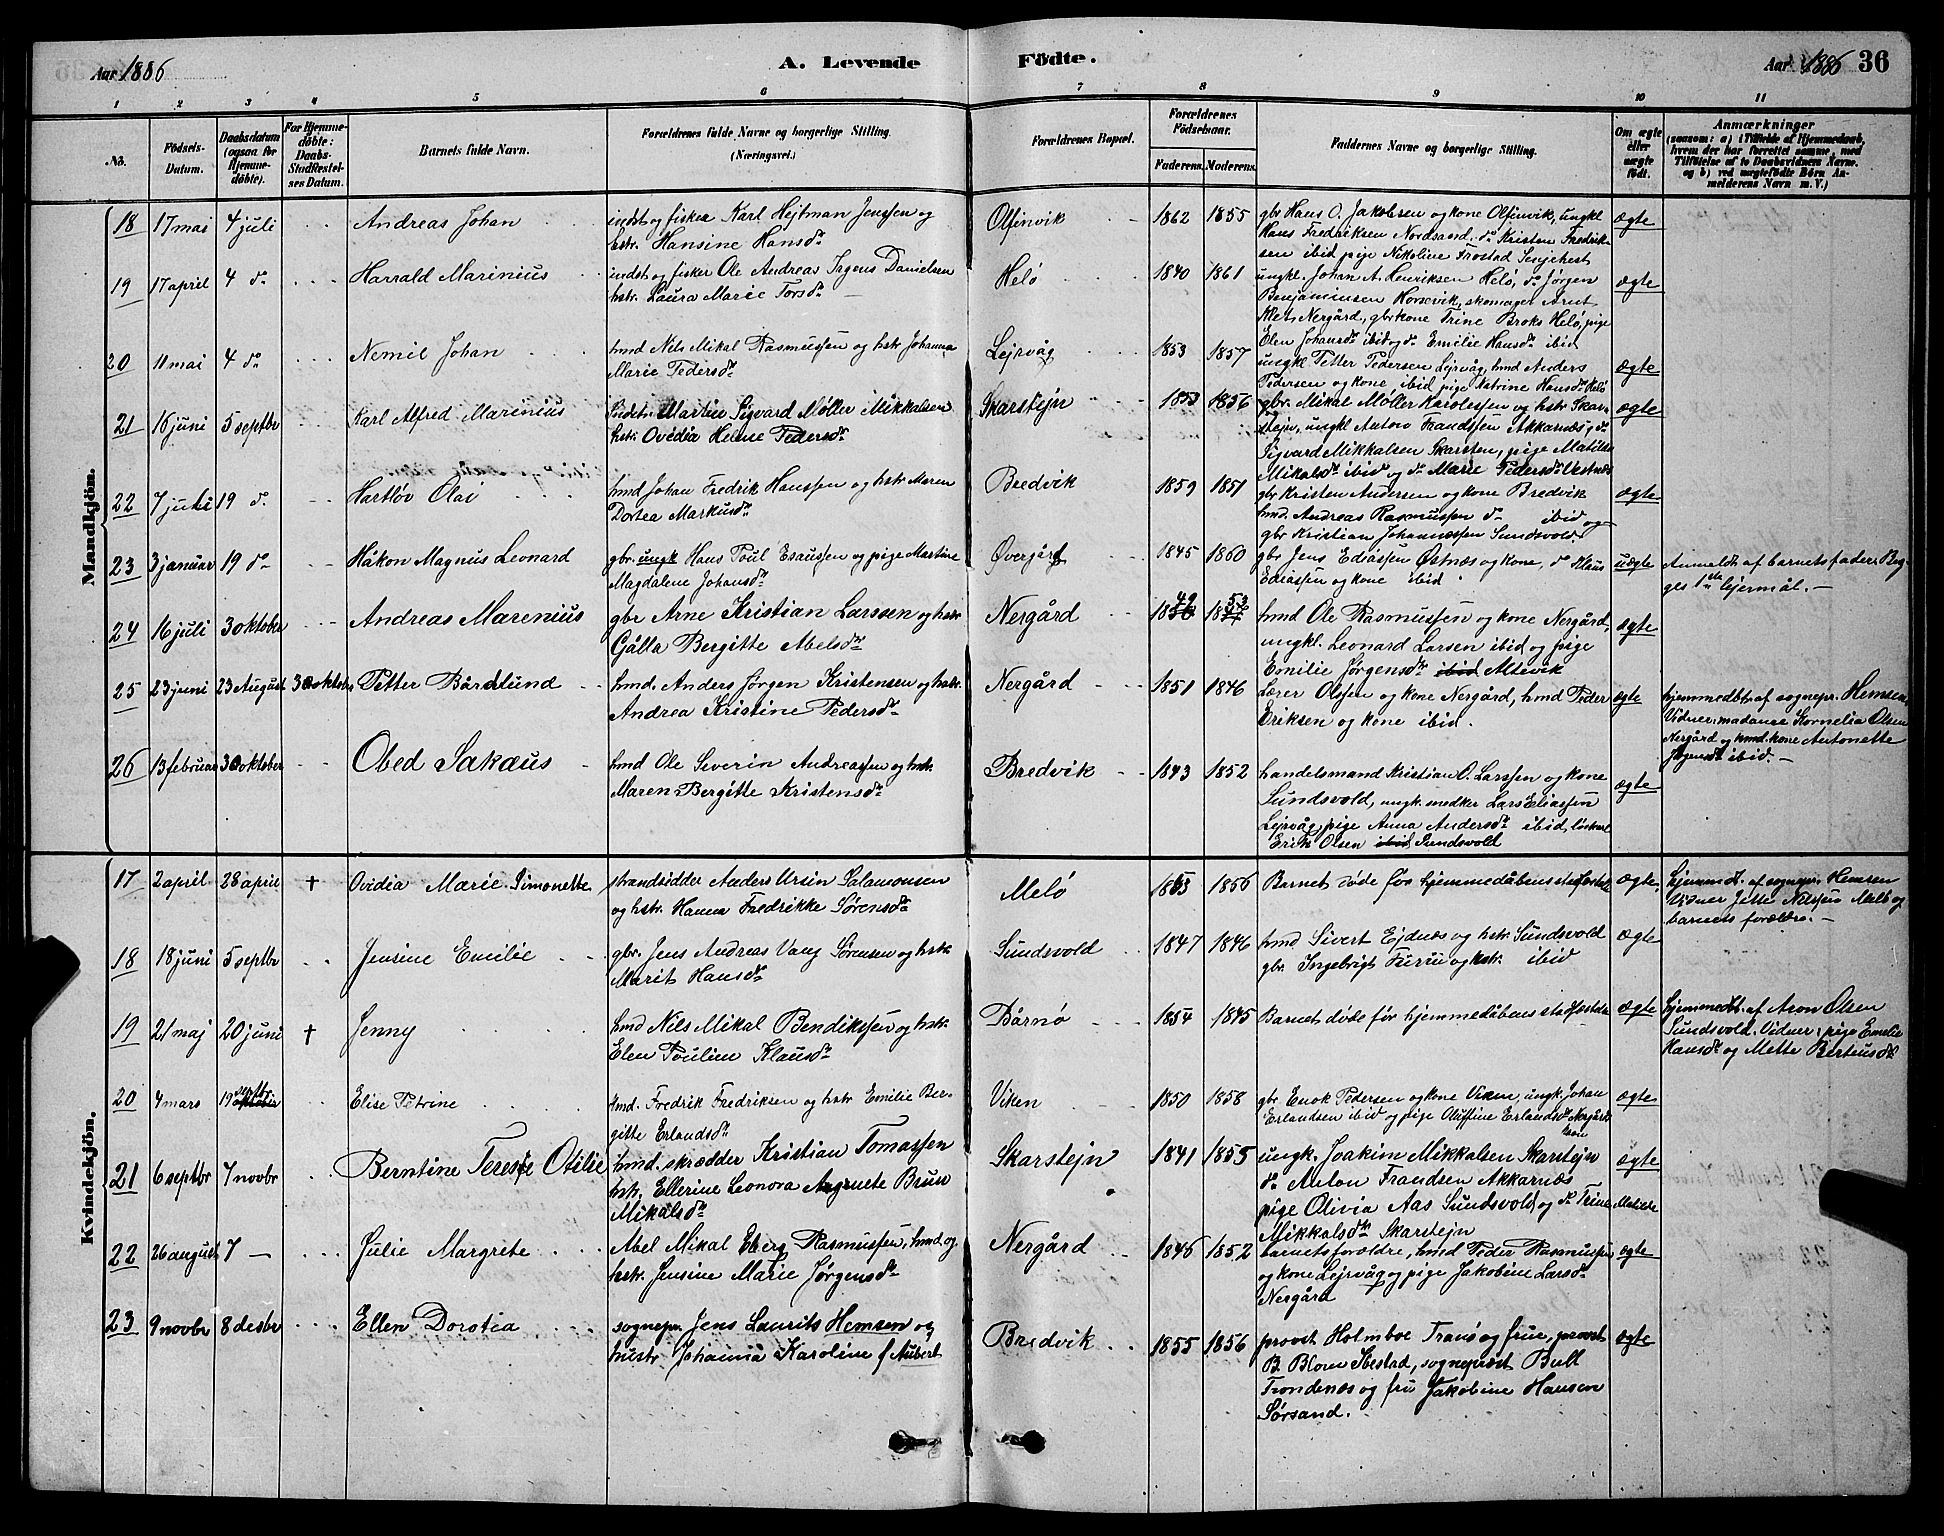 Aar 1886 A. Levende Födte. Aar 1886 36
1 2 3 4 5 6 7 8 9 10 11
No. Födsels-Datum. Daabsdatum (ogsaa for Hjemme-döbte). For Hjemme-döbte: Daabs-Stadfæstel-ses Datum. Barnets fulde Navn. Forældrenes fulde Navne og borgerlige Stilling. (Næringsvei.) Forældrenes Bopæl. Forældrenes Födselsaar. Faderens. Moderens. Faddernes Navne og borgerlige Stilling. Om ægte eller uægte födt. Anmærkninger (saasom: a) i Tilfælde af Hjemmedaab, hvem der har forrettet samme, med Tilföielse af to Daabsvidners Navne. og b) ved uægtefödte Börn An-melderens Navn m. V.)
Mandkjön.
18 17 mai 4 juli Andreas Johan indst og fisker Karl Hejtman Jenssen og
hstr. Hansine Hansdr Olfinvik 1862 1855 gbr Hans O. Jakobsen og kone Olfinvik, ungkl
Hans Fredriksen Nordsand, do Kristen Fredrik-
sen ibid pige Nikoline Frostad Senjehest ægte
19 17 april 4 do Harrald Marinius indst og fisker Ole Andreas Ingens Danielsen
hstr. Laura Marie Torsdr Helö 1840 1861 ungkl. Johan A. Henriksen Helö, do Jörgen
Benjaminsen Horsevik, skomager Arnt
Mets Nergård, gbr kone Trine Broks Helö, pige
Elen Johansdr ibid og do Emilie Hansdr ibid ægte
20 11 mai 4 do Nemil Johan hmd Nils Mikal Rasmussen og hstr Johanna
Marie Pedersdr Lejrvåg 1853 1857 ungkl Petter Pedersen Lejrvåg, hmd Anders
Pedersen og kone ibid pige Katrine Hansdr Helö ægte
21 16 juni 5 septbr Karl Alfred Marinius Indstr. Martin Sigvard Möller Mikkalsen
hstr. Ovedia Heline Pedersdr Skarstejn 1853 1856 gbr. Mikal Möller Karolessen og hstr Skar-
stejn, ungkl Anton Frandssen Akkarnæs, do
Sigvard Mikkalsen Skarsten, pige Matilde
Mikalsdr ibid og do Marie Pedersdr Vestnæs ægte
22 7 juni 19 do Hartlöv Olai hmd Johan Fredrik Hanssen og hstr Maren
Dortea Markusdr Bredvik 1859 1851 gbr Kristen Andersen og kone Bredvik
hmd. Andreas Rasmussen do ibid og
gbr Kristian Johannessen Sundsvold ægte
23 3 januar 19 do Håkon Magnus Leonard gbr. ungk Hans Poul Esaussen og pige Martine
Magdalene Johansdr Övergård 1845 1860 gbr Jens Ediassen Östnæs og kone, do Klaus
Ediassen og kone ibid uægte Anmeldt af barnets fader. Beg-
ges 1ste lejermål.
24 16 juli 3 oktober Andreas Marenius gbr Arne Kristian Larssen og hstr.
Gölla Bergitte Abelsdr Nergård 1849 1853 hmd Ole Rasmussen og kone Nergård,
ungkl. Leonard Larsen ibid og pige
Emilie Jörgensdr ibid Altevik ægte
25 23 juni 23 August 3 oktober Petter Bårdlund hmd. Anders Jörgen Kristensen og hstr.
Andrea Kristine Pedersdr Nergård 1851 1846 Lærer Olssen og kone Nergård, hmd Peder
Eriksen og kone ibid. ægte hjemmedbt. af sognepr. Hemsen
Vidner: madame Kornelia Olsen
Nergård og hmd. kone Antonette
Jörgensdr ibid.
26 13 februar 3 oktober Obed Sakæus hmd Ole Severin Andreassen og hstr.
Maren Bergitte Kristensdr Bredvik 1843 1852 handelsmand Kristian O. Larssen og kone
Sundsvold, ungk. snedker Lars Eliassen
Lejrvåg, pige Anna Andersdr ibid, löskarl
Erik Olsen ibid Sundsvold ægte
Kvindekjön.
17 2 april 28 april † Ovidia Marie Simonette strandsidder Anders Ursin Salamonsen
og hstr. Hanna Fredrikke Sörensdr Melö 1853 1856 Barnet döde för hjemmedåbens stadfæstelse ægte. hjemmedt. af sognepr. Hemsen
Vidner Jette Nilssen Melö og
barnets forældre.
18 18 juni 5 septbr Jensine Emilie gbr. Jens Andreas Vang Sörensen og hstr.
Marit Hansdr Sundsvold 1847 1846 hmd Sivert Ejdnæs og hstr. Sundsvold
gbr. Ingebrigt Furru og hstr. ibid ægte
19 21 maj 20 juni † Jenny hmd Nils Mikal Bendikssen og hstr.
Elen Pouline Klausdr Dårnö 1854 1845 Barnet döde för hjemmedåbens stadfæstelse ægte hjemmedbt. af Aron Olsen
Sundsvold. Vidner: pige Emelie
Hansdr og Mette Berteusdr
20 4 mars 19 septbr oktober Elise Petrine hmd. Fredrik Fredriksen og hstr Emilie Ber-
gitte Erlandsdr Viken 1850 1858 gbr Enok Pedersen og kone Viken, ungk. Johan
Erlandsen ibid og pige Oluffine Erlandsdr Nergård ægte
21 6 septbr 7 novbr Berntine Terese Otilie hmd. skrædder Kristian Tomassen
hstr. Ellerine Leonora Angnete Brun
Mikalsdr Skarstejn 1841 1855 ungk. Joakim Mikkalsen Skarstejn
do Anton Frandsen Akkarnæs
pige Olivia Aas Sundsvold og do Trine Matilde
Mikkalsdtr Skarstejn ægte
22 26 august 7 — Julie Margrete Abel Mikal Eberg Rasmussen, hmd og
hstr. Jensine Marie Jörgensdr Nergård 1846 1852 barnets foreldre, hmd Peder Rasmussen
og kone Lejrvåg og pige Jakobine Larsdr
Nergård ægte
23 9 novbr 8 desbr Ellen Dorotea sognepr. Jens Laurits Hemsen og
hustr Johanna Karoline f Aubert Bredvik 1855 1856 provst Holmboe Tranö og frue, provst
B Blom Ibestad, sogneprest Bull
Trondenæs og fru Jakobine Hansen
Sörsand. ægte